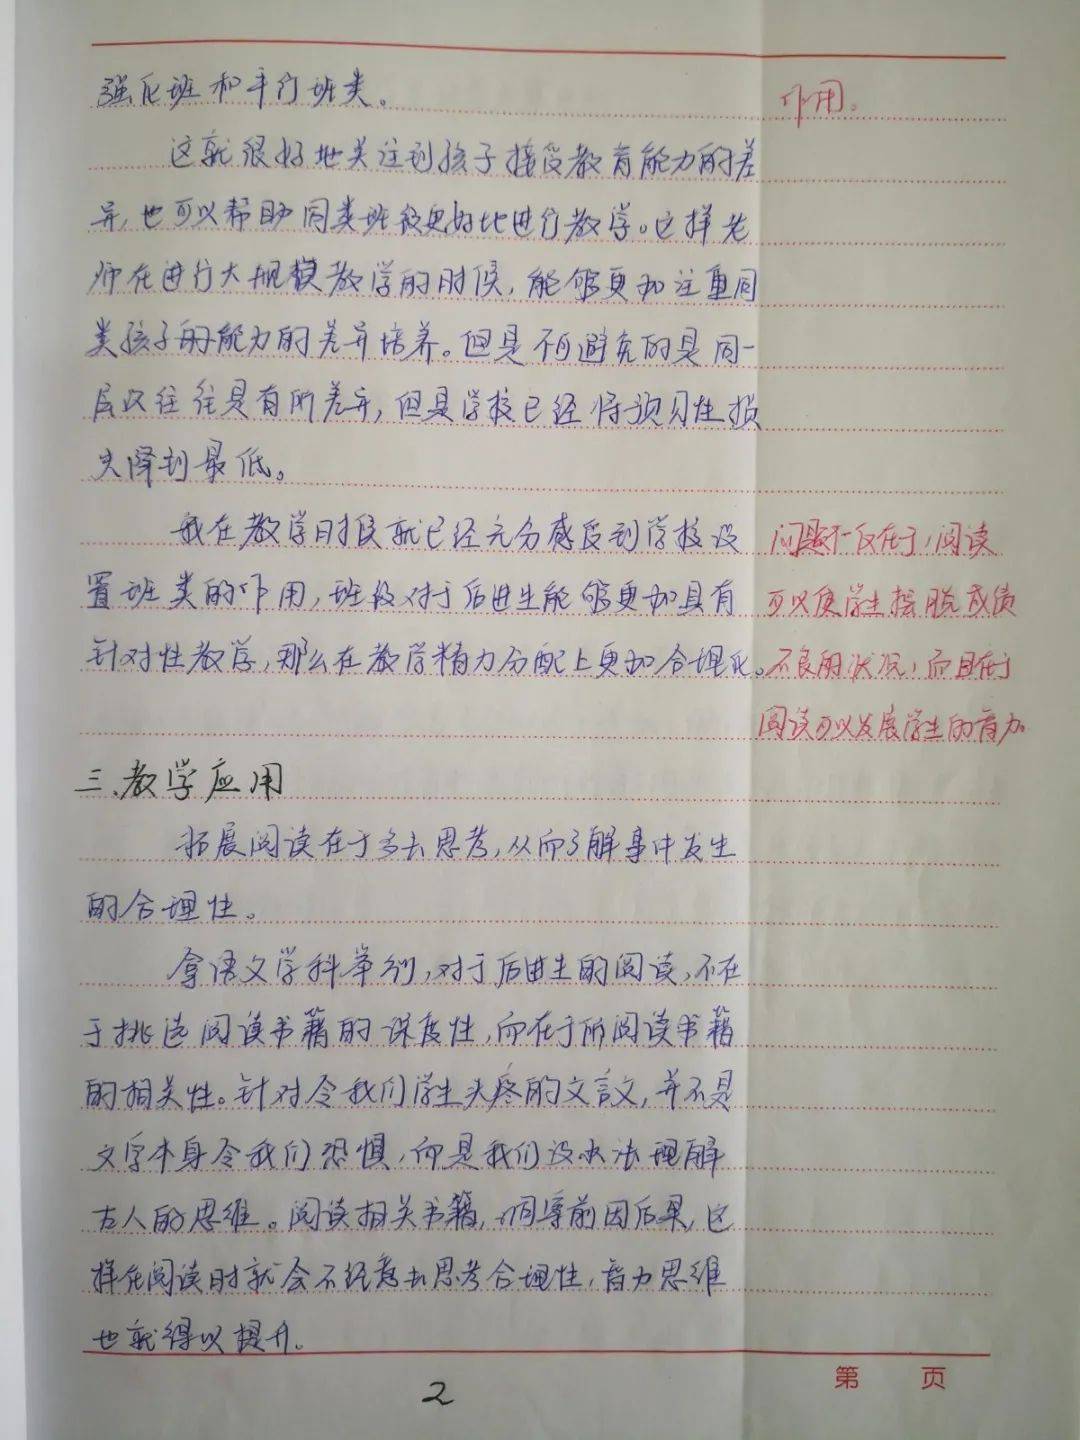 强化班和平行班类。
作用。
这就很好地关注到孩子接受教育能力的差
异,也可以帮助同类班级更好地进行教学。这样老
师在进行大规模教学的时候,能够更加注重同
类孩子的能力的差异培养。但是不可避免的是同一
层次往往是有所差异,但是学校已经将预习性损
失降到最低。
我在教学时候就已经充分感受到学校设
置班类的作用,班级对于后进生能够更加具有
针对性教学,那么在教学精力分配上更加合理化。
问题不仅在于,阅读
可以使学生摆脱成绩
不良的状况,而且在于
阅读可以发展学生的智力。
三、教学应用
拓展阅读在于多去思考,从而了解事中发生
的合理性。
拿语文学科举例,对于后进生的阅读,不在
于挑选阅读书籍的深度性,而在于所阅读书籍
的相关性。针对令我们学生头疼的文言文,并不是
文字本身令我们恐惧,而是我们没办法理解
古人的思维。阅读相关书籍,前因后果,这
样在阅读时就会不经意去思考合理性,智力思维
也就得以提升。
第 页
2